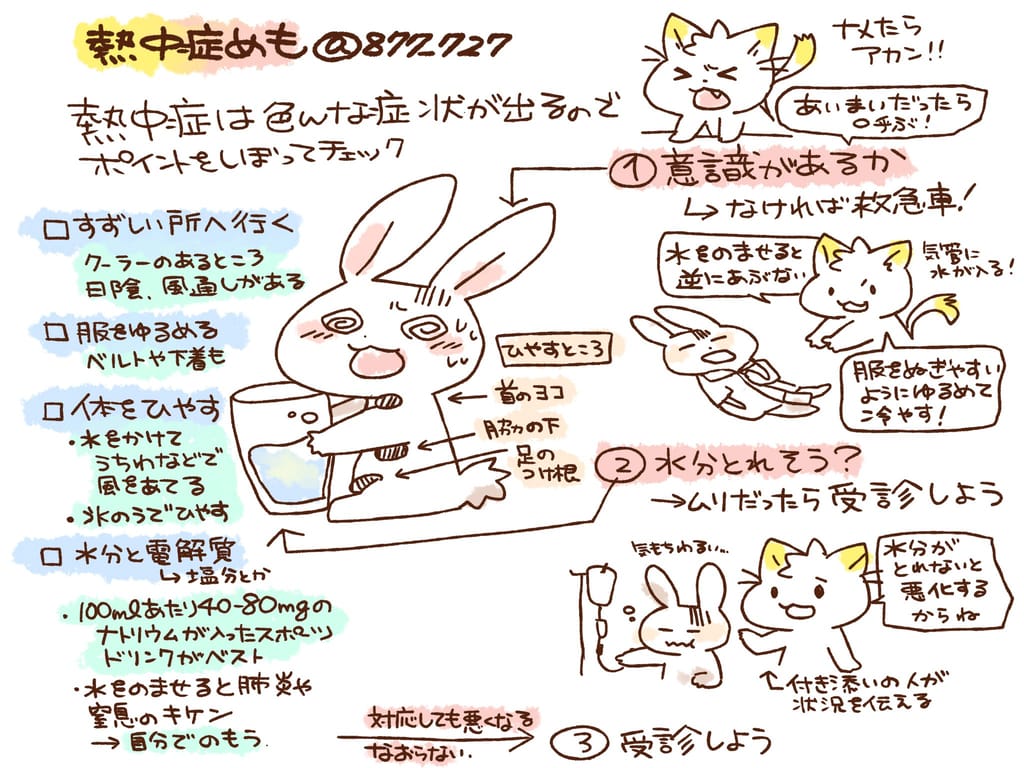 熱中症めも@877_727
熱中症は色んな症状が出るので
ポイントをしぼってチェック
ナメたら
アカン!!
あいまいだったら
呼ぶ!
① 意識があるか
↳なければ救急車!
水をのませると
逆にあぶない
気管に
水が入る!
服をぬぎやすい
ようにゆるめて
冷やす!
□ すずしい所へ行く
クーラーのあるところ
日陰、風通しがある
□ 服をゆるめる
ベルトや下着も
□ 体をひやす
・水をかけて
うちわなどで
風をあてる
・氷のうでひやす
□ 水分と電解質
↳塩分とか
・100mlあたり40-80mgの
ナトリウムが入ったスポーツ
ドリンクがベスト
・水をのませると肺炎や
窒息のキケン
→自分でのもう.
ひやすところ
首のヨコ
脇の下
足の
つけ根
② 水分とれそう?
→ムリだったら受診しよう
気もちわるい…
水分が
とれないと
悪化する
からね
付き添いの人が
状況を伝える
対応しても悪くなる
なおらない.
③ 受診しよう